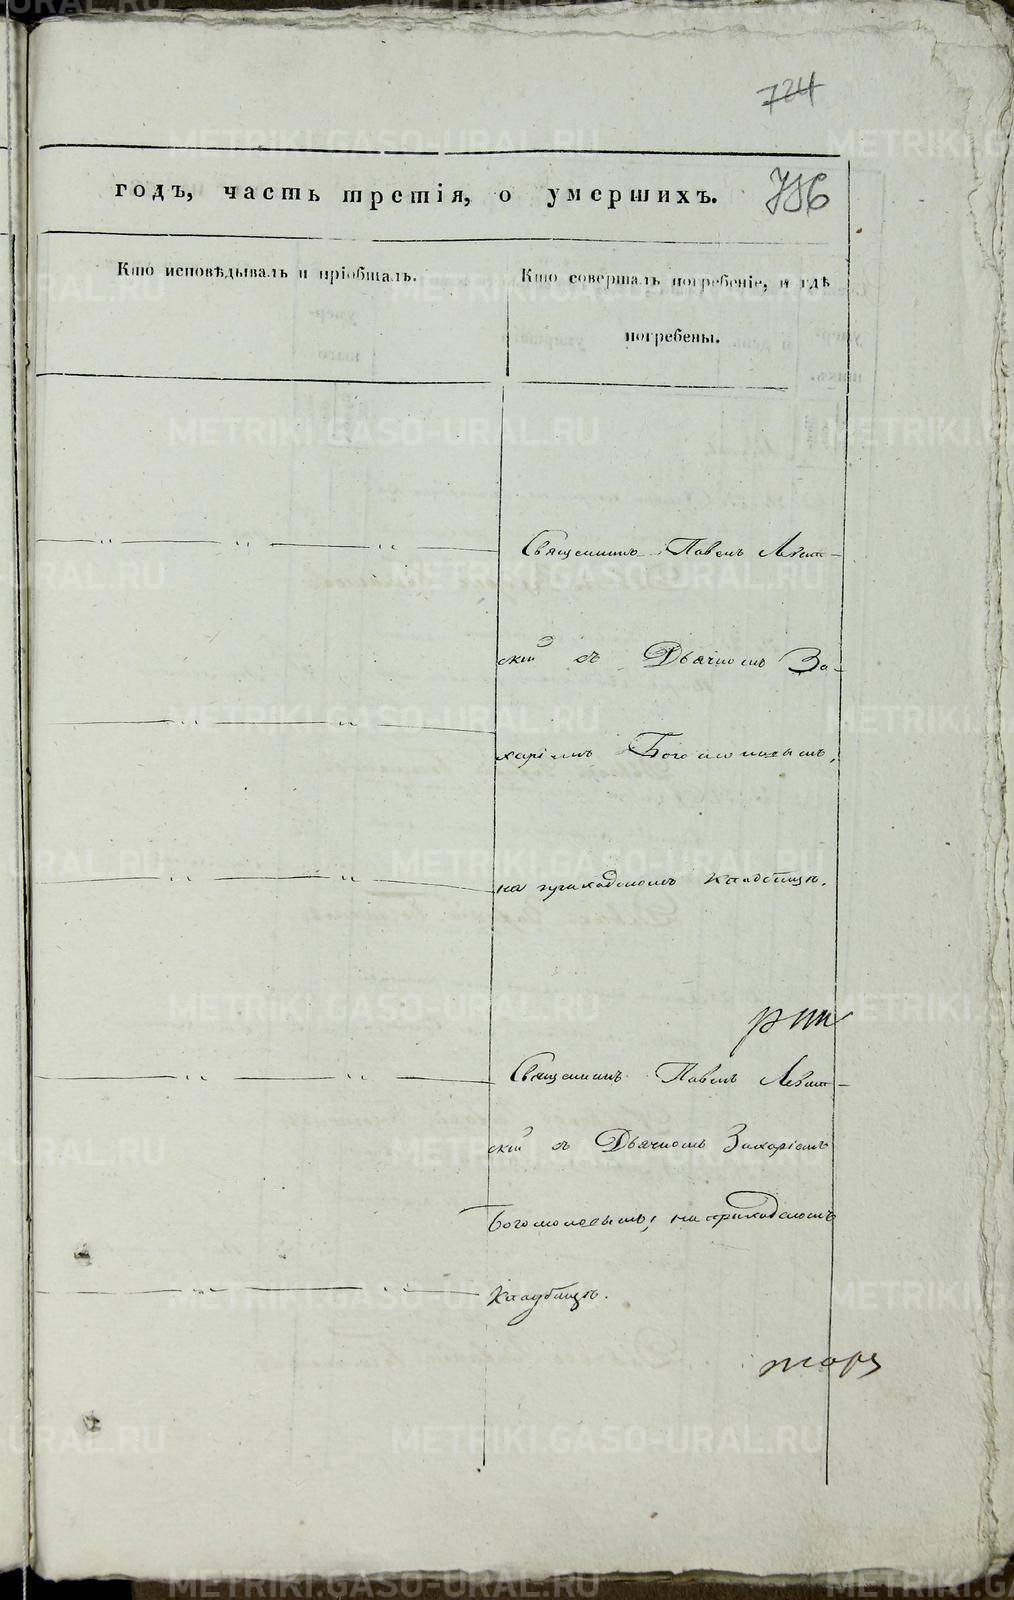 724
годъ, часть третія, о умершихъ. 756
Кто исповѣдывалъ и пріобщалъ.
Кто совершалъ погребеніе, и гдѣ
погребены.
Священникъ Павелъ Левит-
скій съ Дьячкомъ За-
харіемъ Богомоловымъ,
на приходскомъ кладбищѣ.
Священникъ Павелъ Левит-
скій съ Дьячкомъ Захаріемъ
Богомоловымъ, на приходскомъ
кладбищѣ.
METRIKI.GASO-URAL.RU